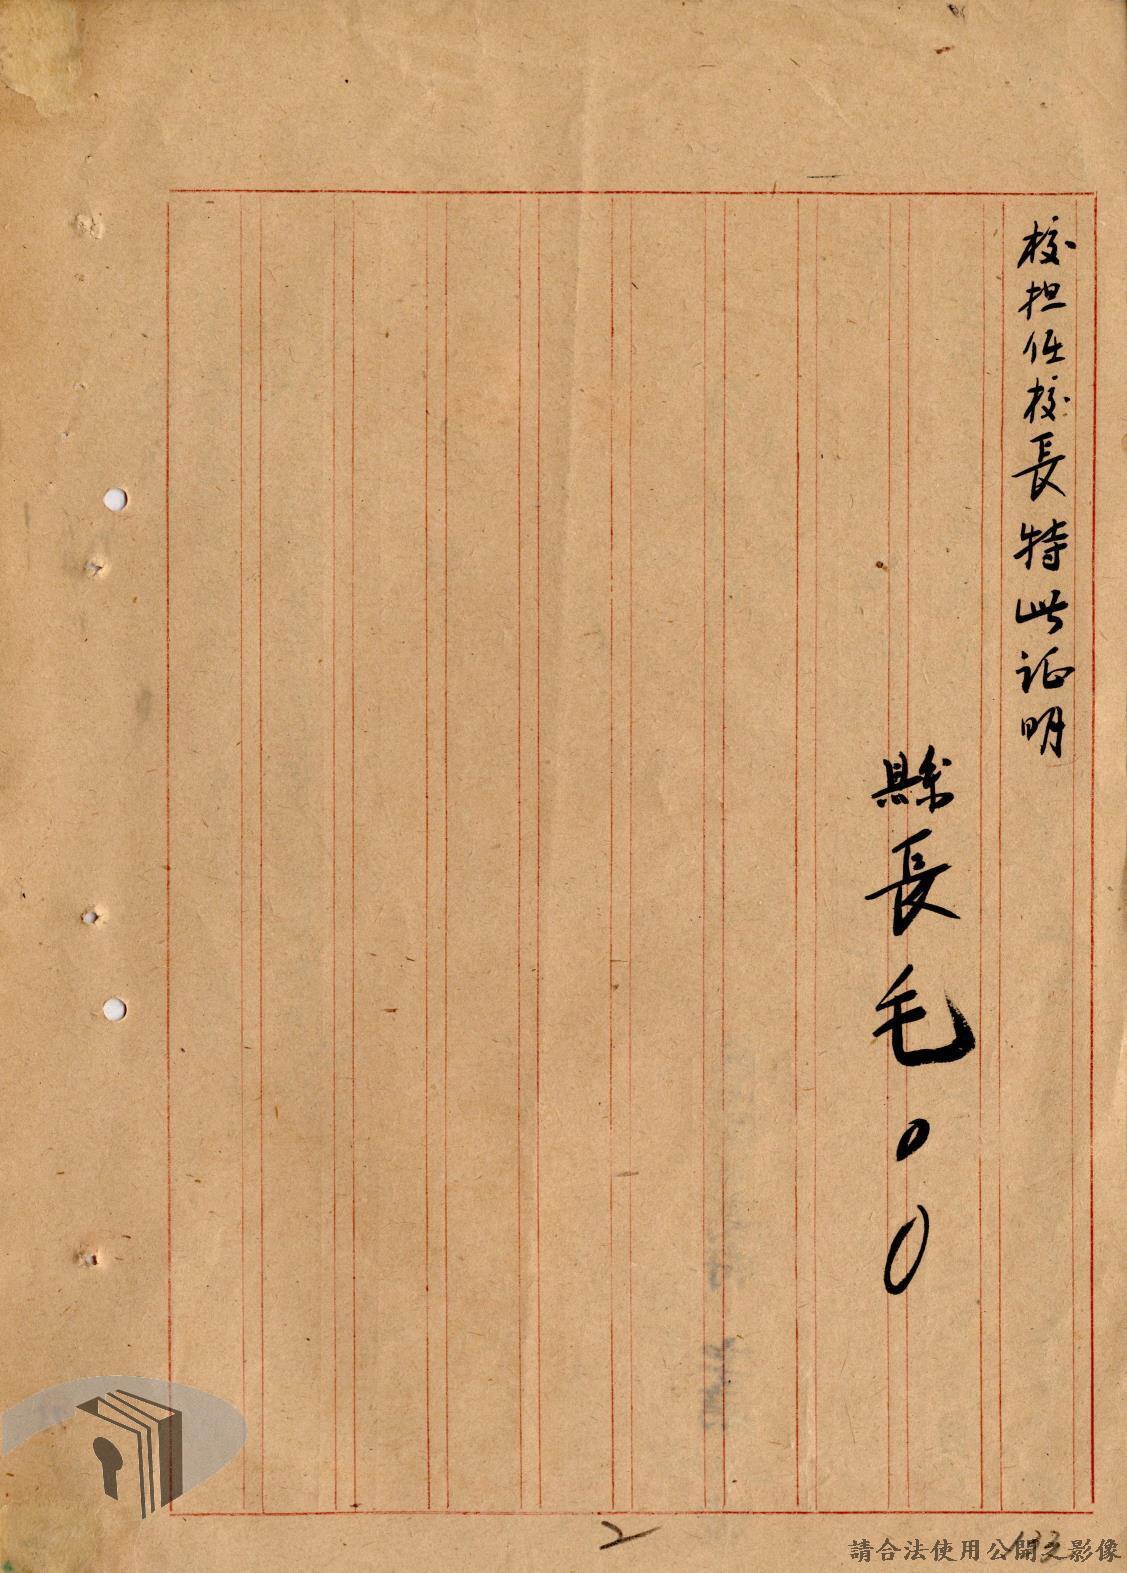 校担任校長特此证明
縣長毛〇〇
2
133
請合法使用公開之影像